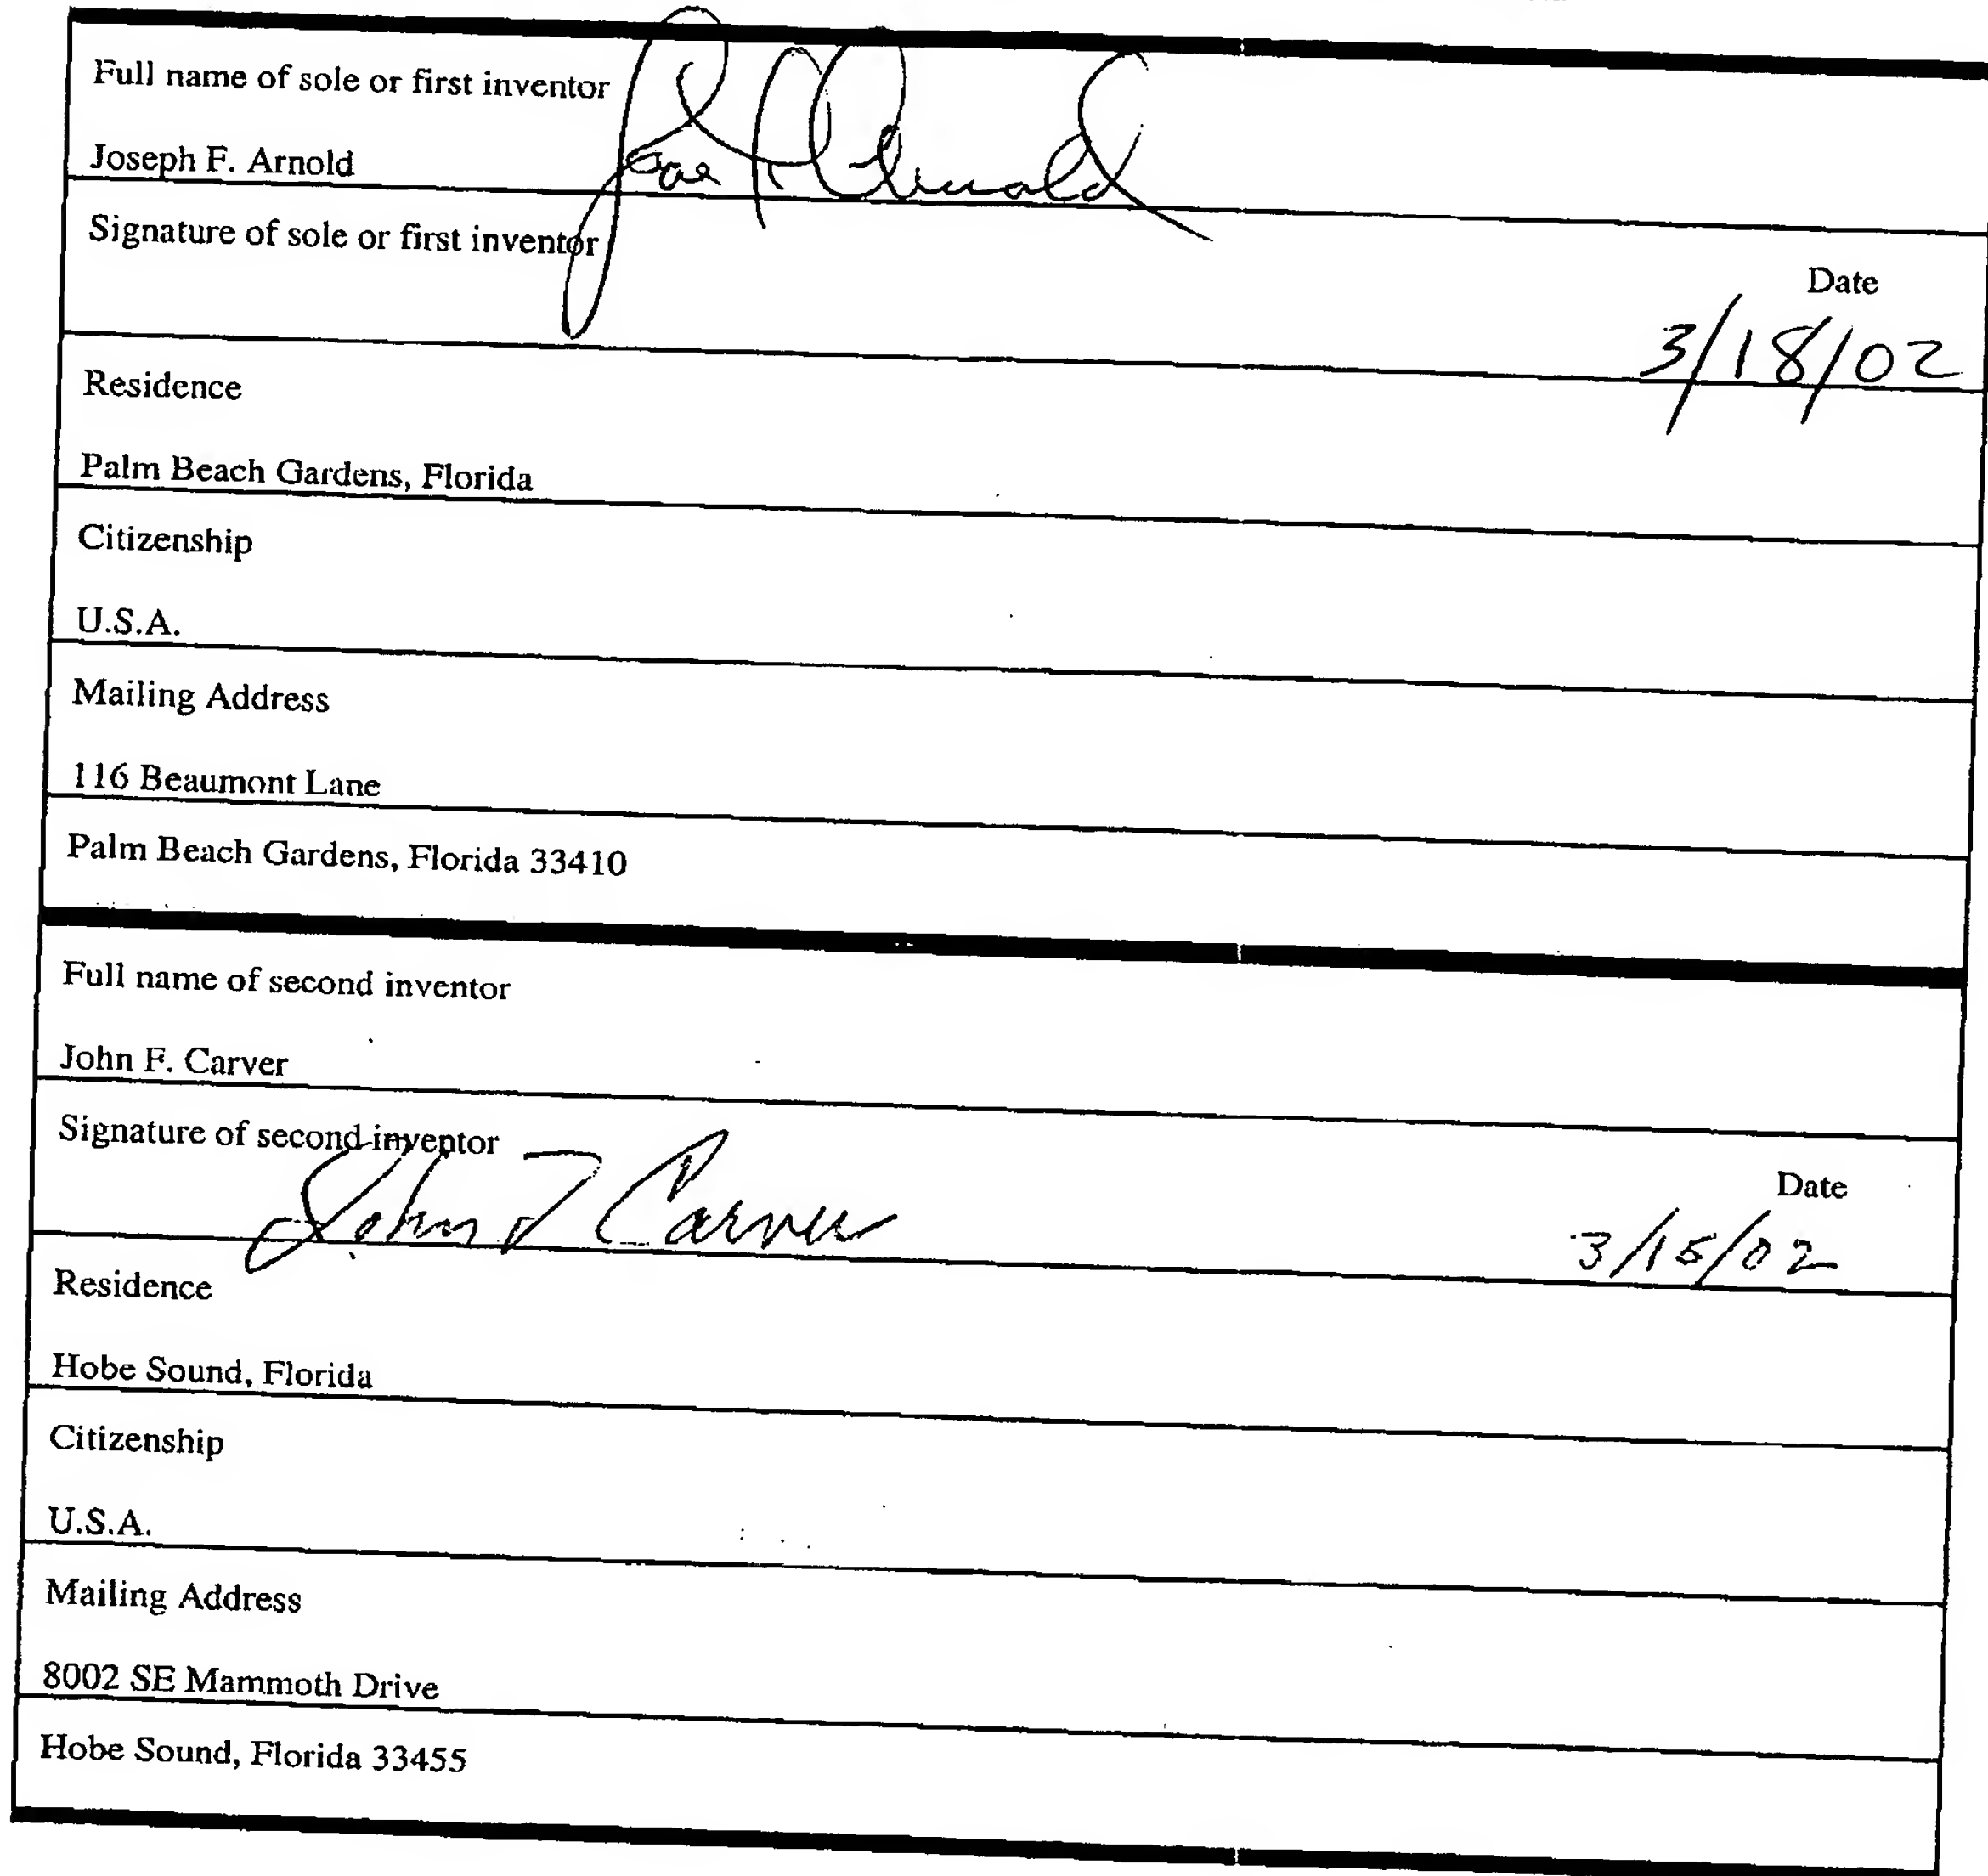 Full name of sole or first inventor
Joseph F. Arnold
Joe F Arnold
Signature of sole or first inventor
Date
3/18/02
Residence
Palm Beach Gardens, Florida
Citizenship
U.S.A.
Mailing Address
116 Beaumont Lane
Palm Beach Gardens, Florida 33410
Full name of second inventor
John F. Carver
Signature of second inventor
Date
John F Carver
3/15/02
Residence
Hobe Sound, Florida
Citizenship
U.S.A.
Mailing Address
8002 SE Mammoth Drive
Hobe Sound, Florida 33455